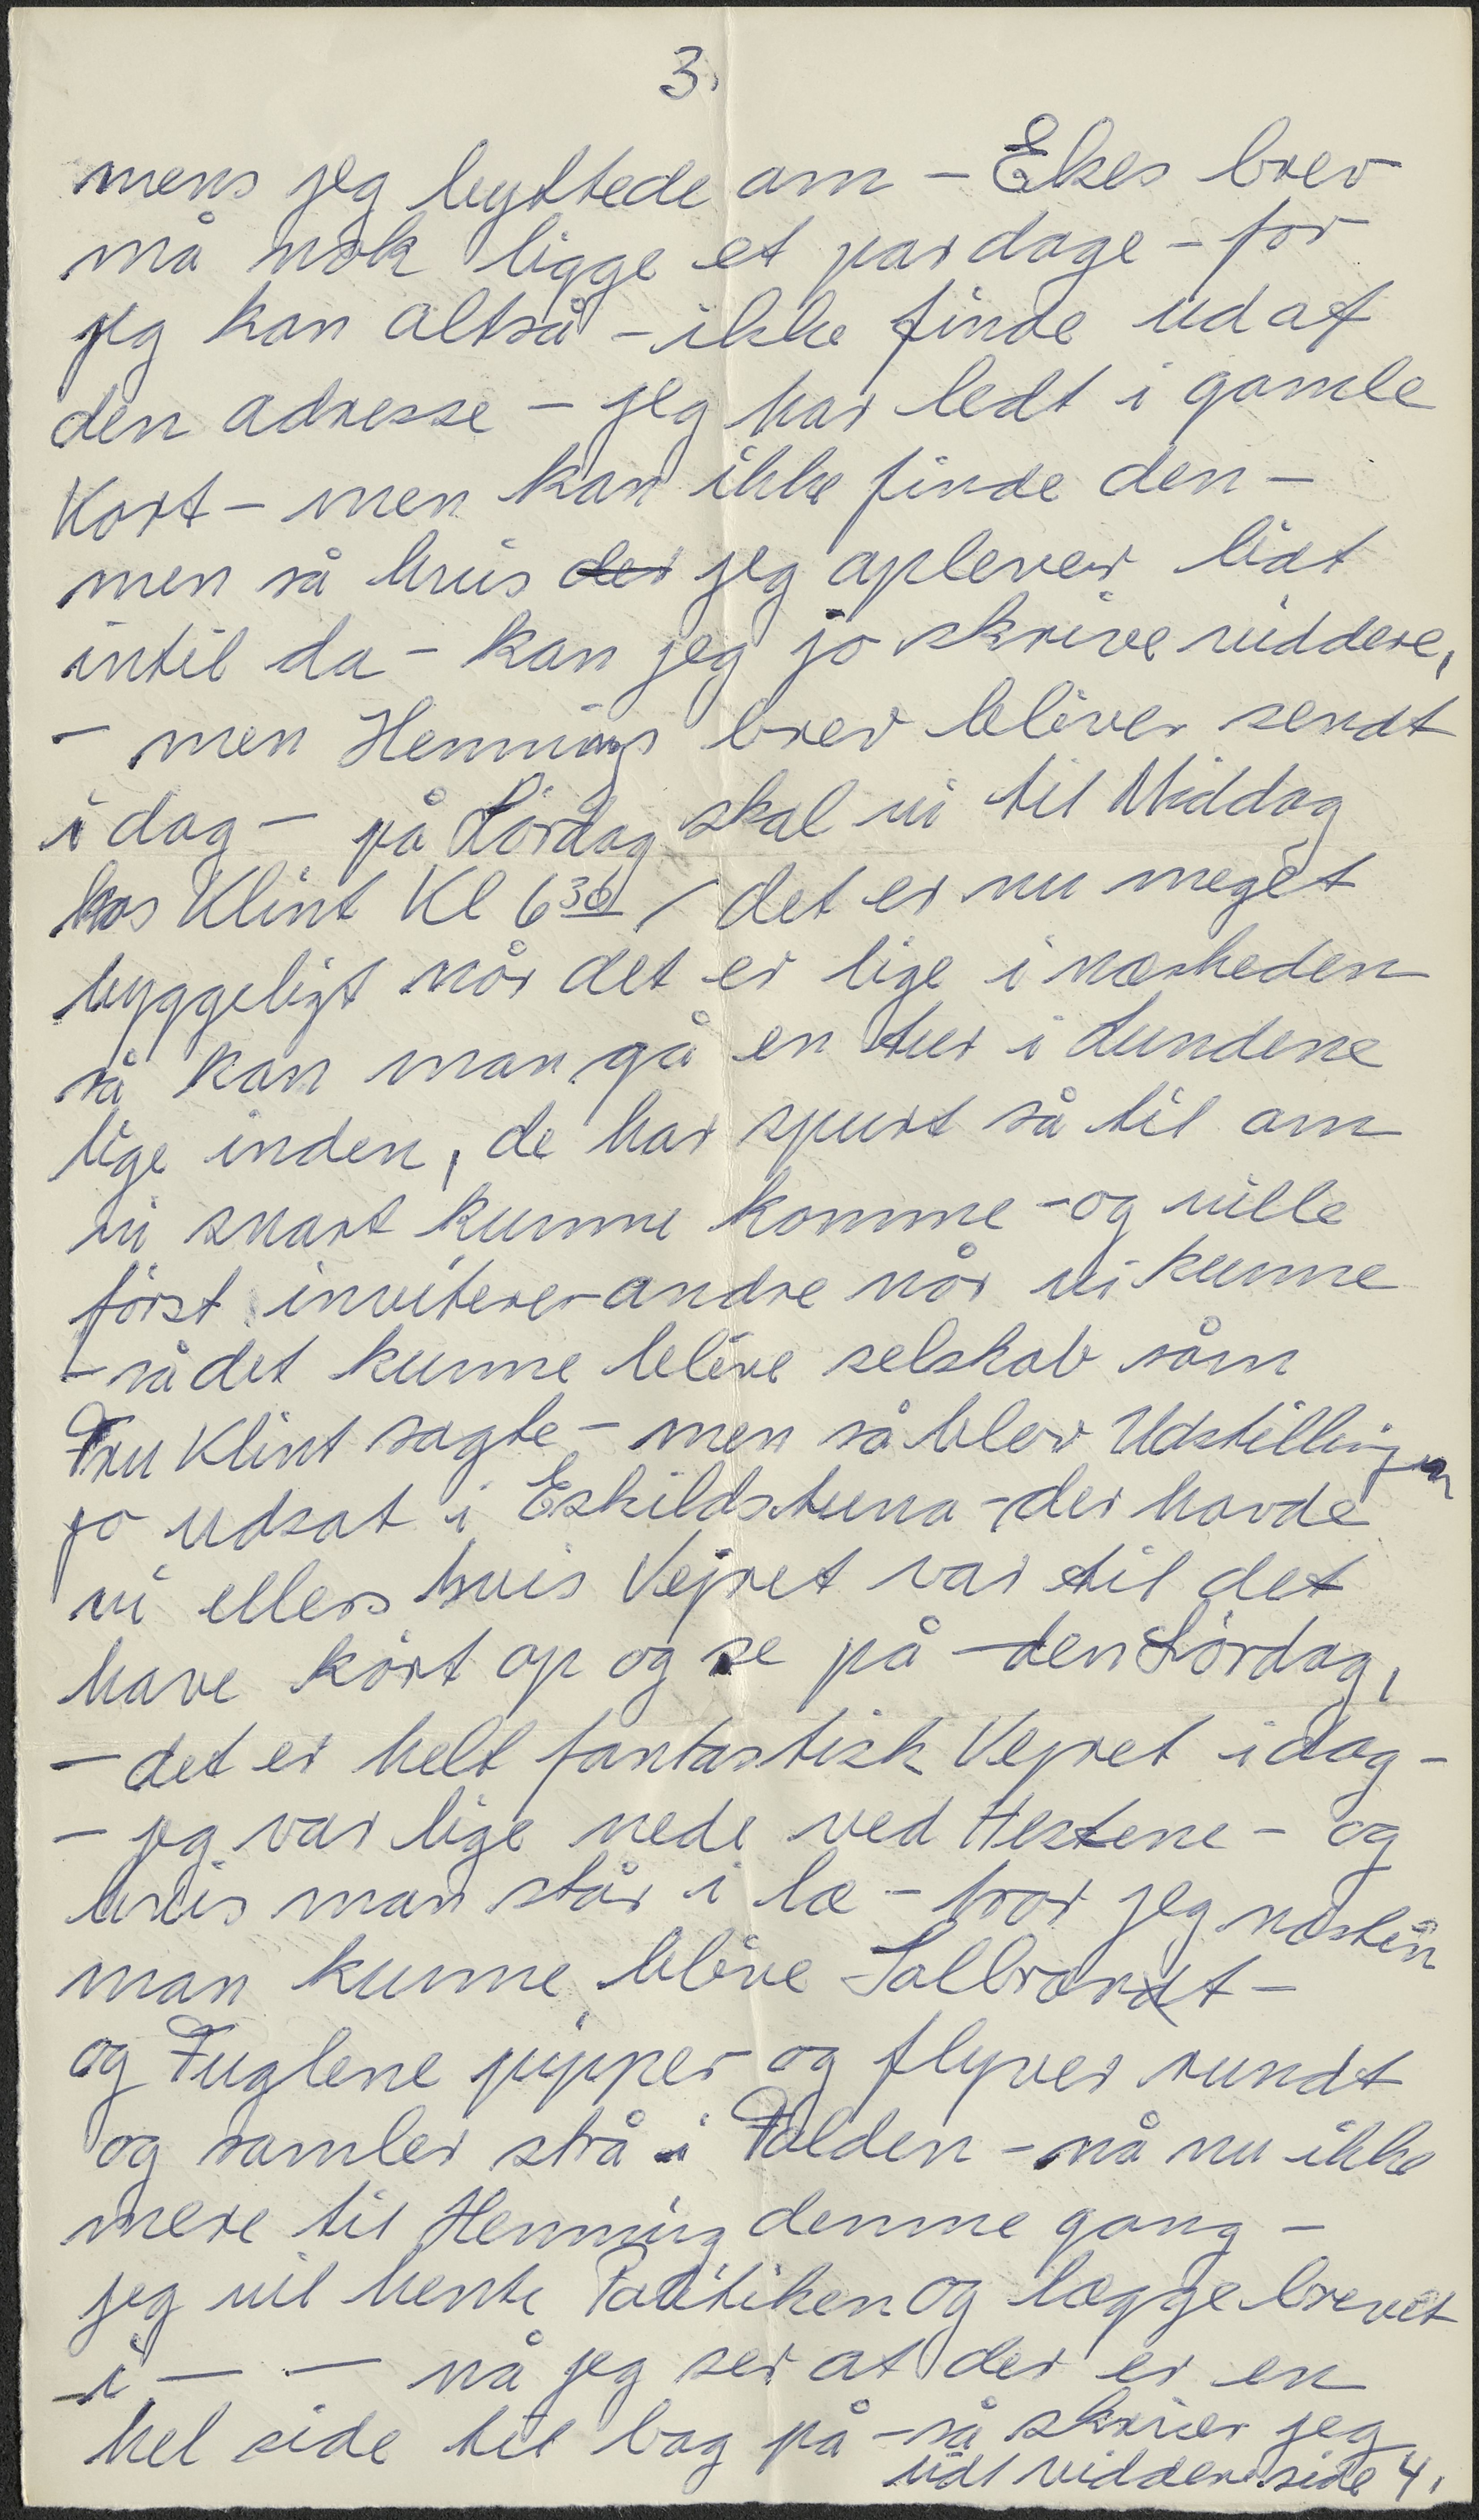 3.
mens jeg hyttede om – Ekes brev
må nok ligge et par dage – for
jeg kan altså – ikke finde ud af
den adresse – jeg har ledt i gamle
Kort – men kan ikke finde den –
men så hvis der jeg oplever lidt
intil da – kan jeg jo skrive viddere,
– men Hennings brev bliver sendt
i dag – på Lördag skal vi til Middag
hos Klint Kl 6 30 / det er nu meget
hyggeligt når det er lige i nærheden
så kan man gå en tur i Lundene
lige inden, de har spurt så til om
vi snart kunne komme – og ville
först invitere andre når vi kunne
– så det kunne blive selskab såm
Fru Klint sagte – men så blev Udstillingen
jo udsat i Eskildstuna – der havde
vi ellers hvis Vejret var til det
have kört op og se på – den Lördag,
– det er helt fantastisk Vejret idag –
– jeg var lige nede ved Hestene – og
hvis man står i læ – tror jeg næsten
man kunne blive Solbrændt –
og Fuglene pipper og flyver rundt
og samler strå i Folden – nå nu ikke
mere til Henning denne gang –
jeg vil hente Politiken og lægge brevet
i – – nå jeg ser at der er en
hel side til bag på – så skriver jeg
lidt viddere side 4.